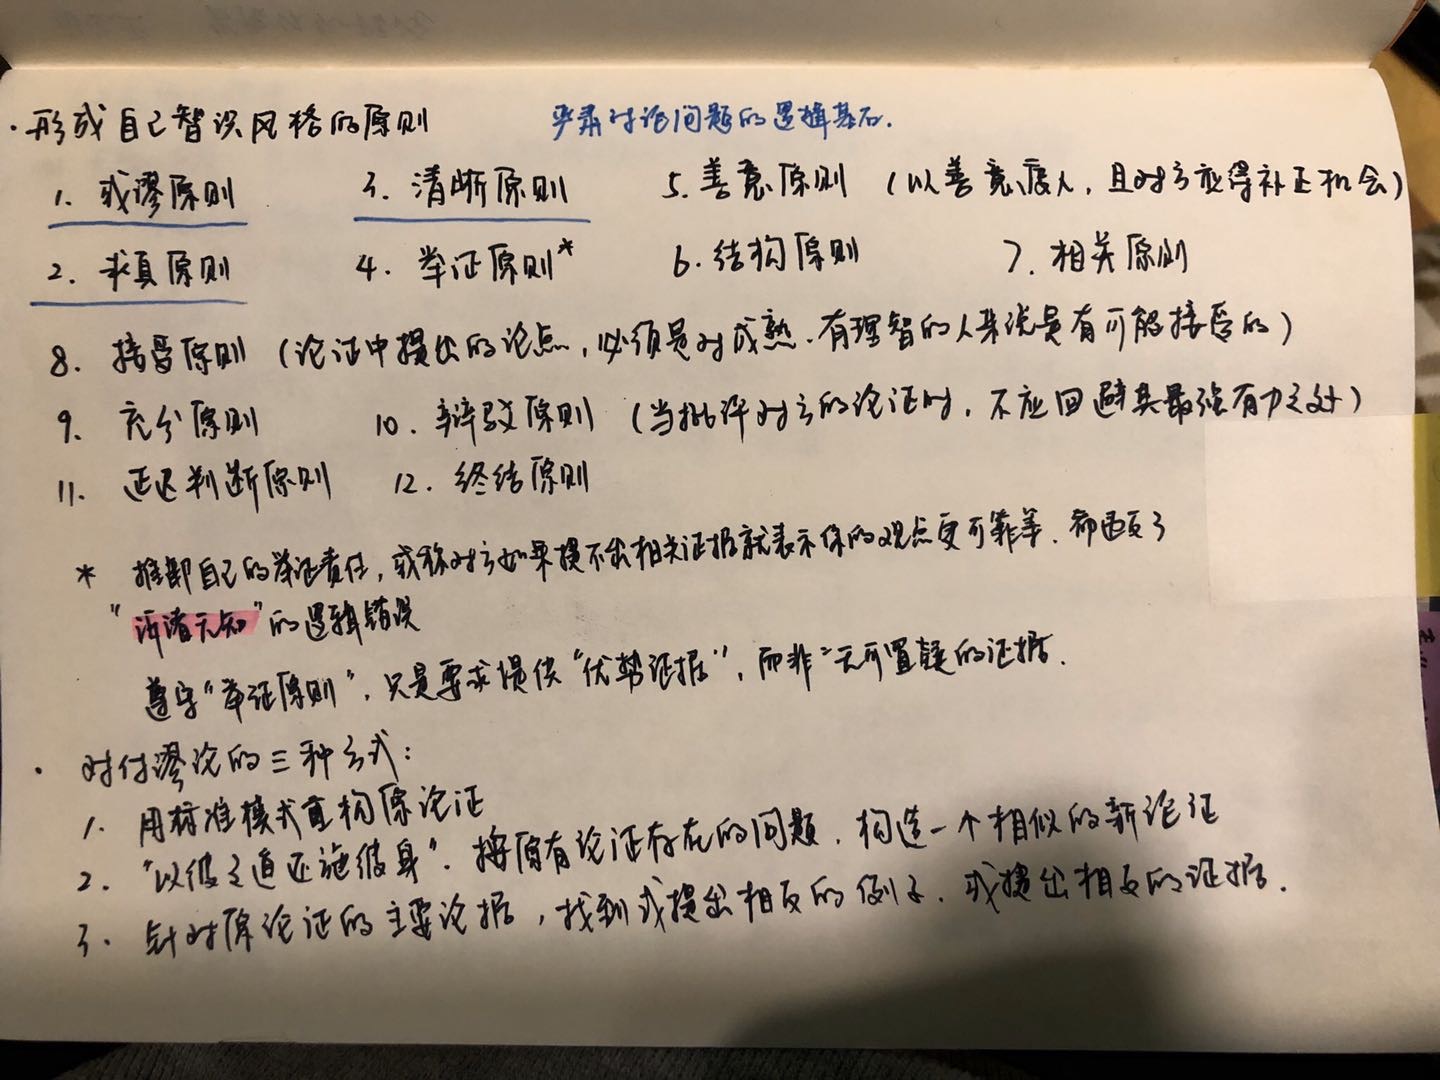 · 形成自己智识风格的原则 严肃讨论问题的逻辑基石.
1. 或谬原则 3. 清晰原则 5. 善意原则 (以善意度人, 且对方应得补正机会)
2. 求真原则 4. 举证原则* 6. 结构原则 7. 相关原则
8. 接受原则 (论证中提出的论点, 必须是对成熟、有理智的人来说是有可能接受的)
9. 充分原则 10. 辩驳原则 (当批评对方的论证时, 不应回避其最强有力之处)
11. 延迟判断原则 12. 终结原则
* 推卸自己的举证责任, 或称对方如果提不出相关证据就表示你的观点更可靠等. 都犯了
"诉诸无知"的逻辑错误
遵守"举证原则", 只是要求提供"优势证据", 而非"无可置疑的证据.
· 对付谬论的三种方式:
1. 用标准模式重构原论证
2. "以彼之道还施彼身". 按原有论证存在的问题, 构造一个相似的新论证
3. 针对原论证的主要论据, 找到或提出相反的例子. 或提出相反的证据.